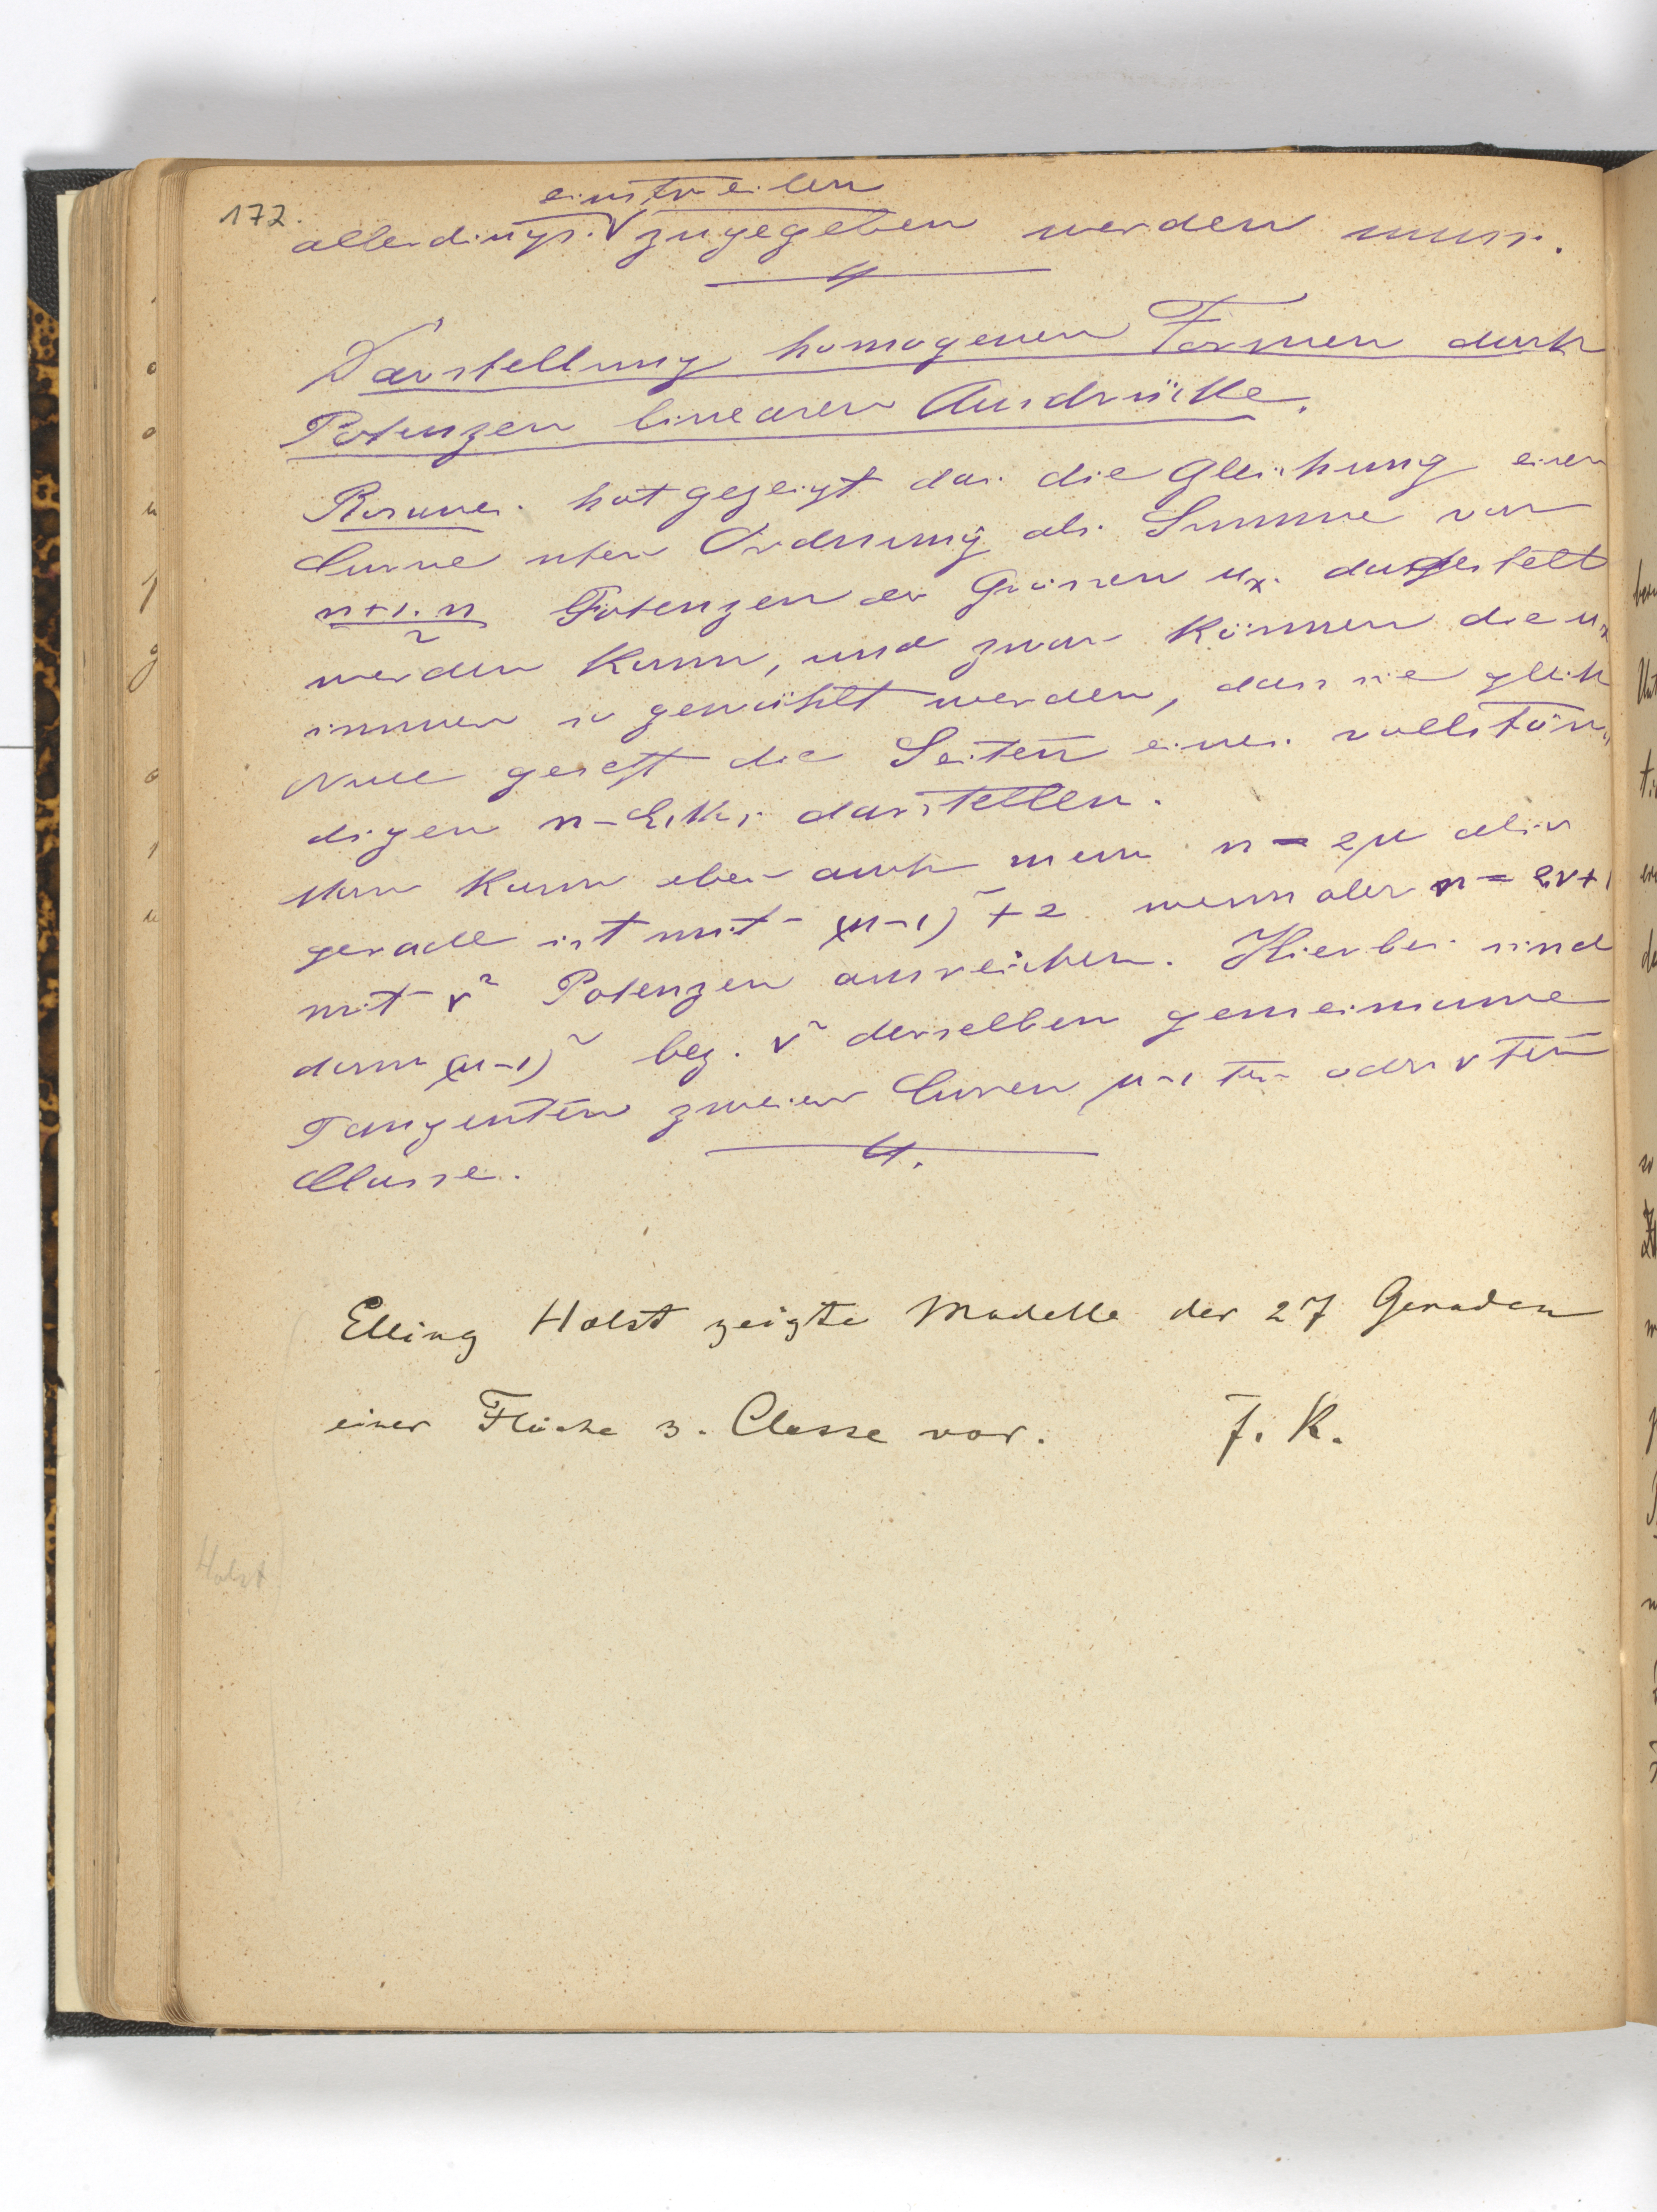 172.
einstweilen
allerdings zugegeben werden muss.
Darstellung homogener Formen durch
Potenzen linearer Ausdrücke.
hat gezeigt das die Gleichung einer
Curve nter Ordnung als Summe von
n+1.n/2 Potenzen der Grössen ux dargestellt
werden kann, und zwar können die ux
immer so gewählt werden, dass sie gleich
Null gesetzt die Seiten eines vollstän
digen n-Ecks darstellen.
Man kann aber auch wenn n = 2μ also
gerade ist mit (μ-1)² + 2 wenn aber n = 2ν+1
mit ν² Potenzen ausreichen. Hierbei sind
dann (μ-1)² bez. ν² derselben gemeinsame
Tangenten zweier Curven μ-1 ter oder ν ter
Classe.
Elling Holst zeigte Modelle der 27 Geraden
einer Fläche 3. Classe vor. F. K.
Holst